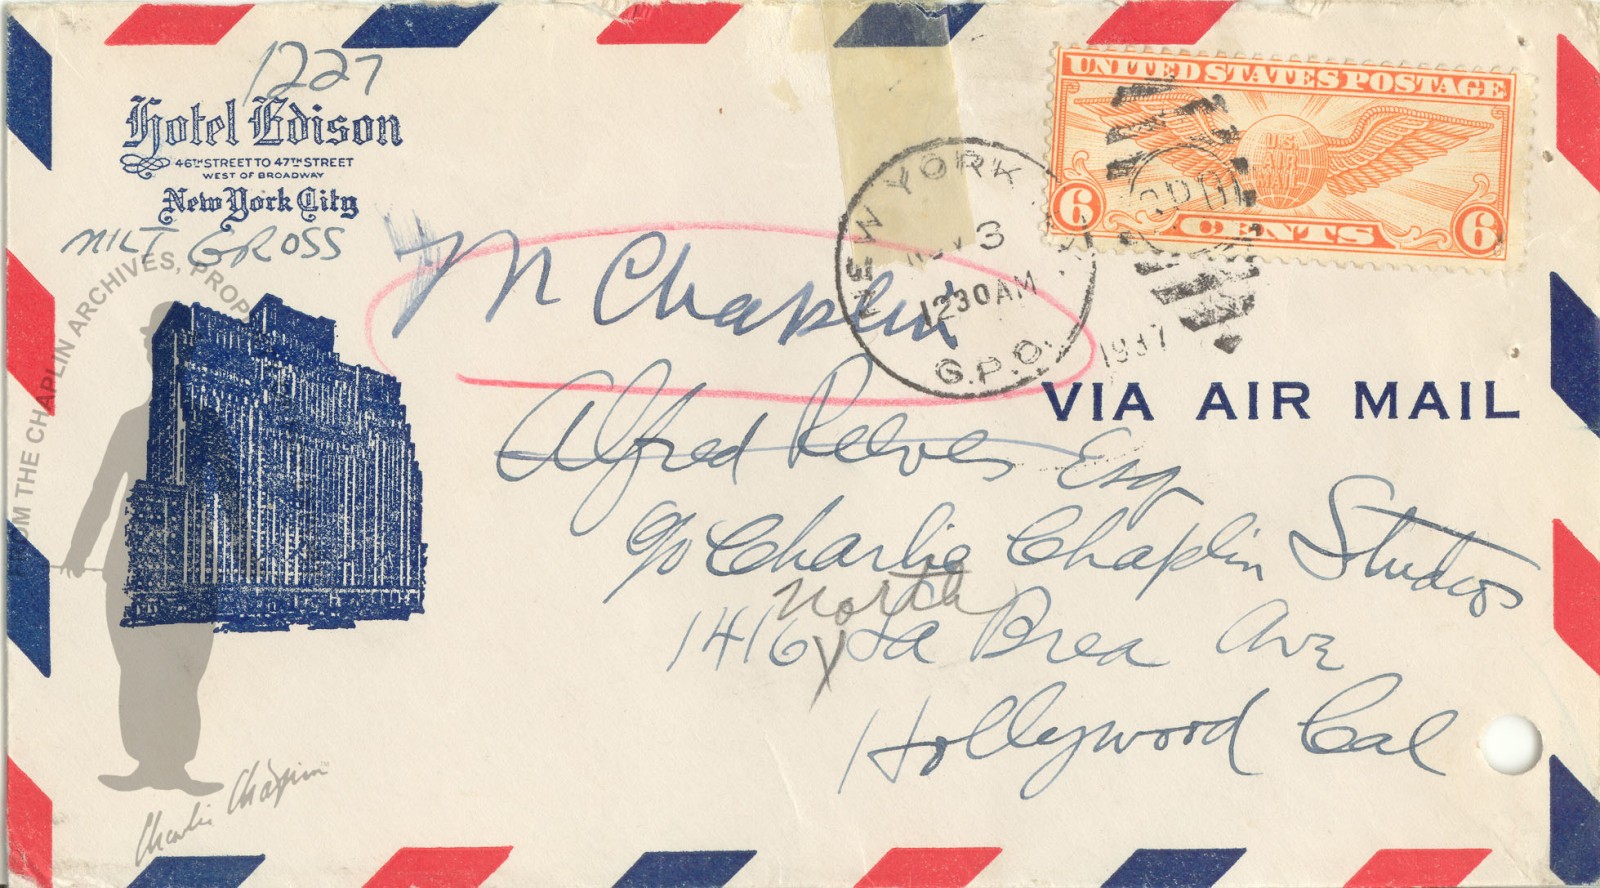 1227
Hotel Edison
46TH STREET TO 47TH STREET
WEST OF BROADWAY
New York City
MILT GROSS
FROM THE CHAPLIN ARCHIVES, PROP
UNITED STATES POSTAGE
U.S.
AIR
MAIL
6 CENTS 6
NEW YORK
3
1230 AM
G.P.O.
1937
M Chaplin
VIA AIR MAIL
Alfred Reeves Esq
c/o Charlie Chaplin Studios
North
1416 La Brea Ave
Hollywood Cal
Charlie Chaplin™